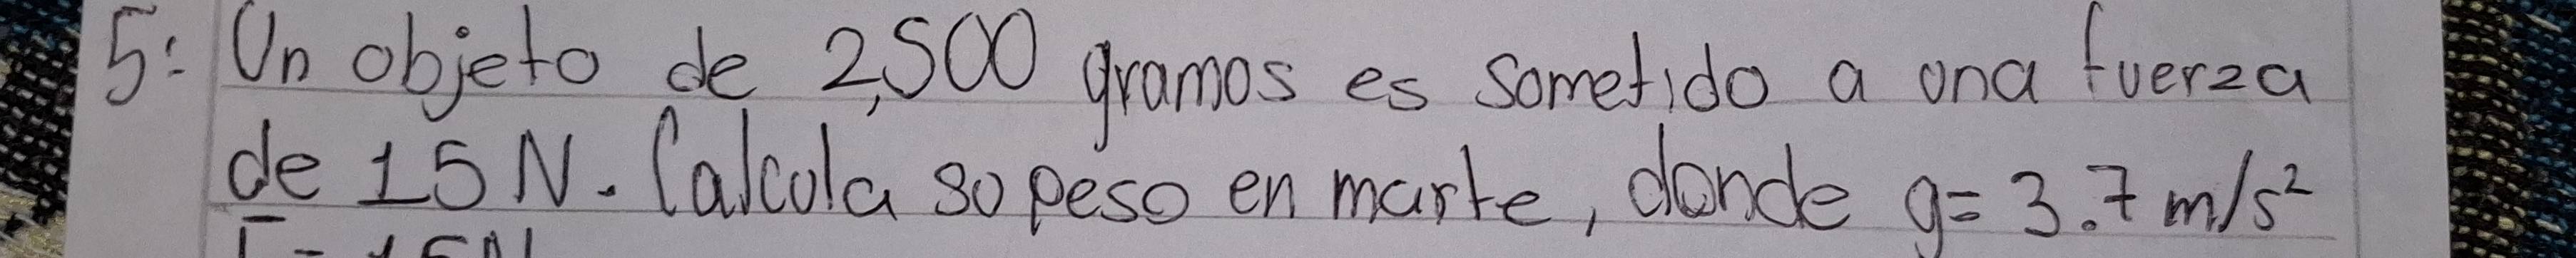 5: Un objeto de 2,500 gramos es sometido a una fuerza
de 15 N. Calcula su peso en marte, donde g= 3.7 m/s²
F = 15N